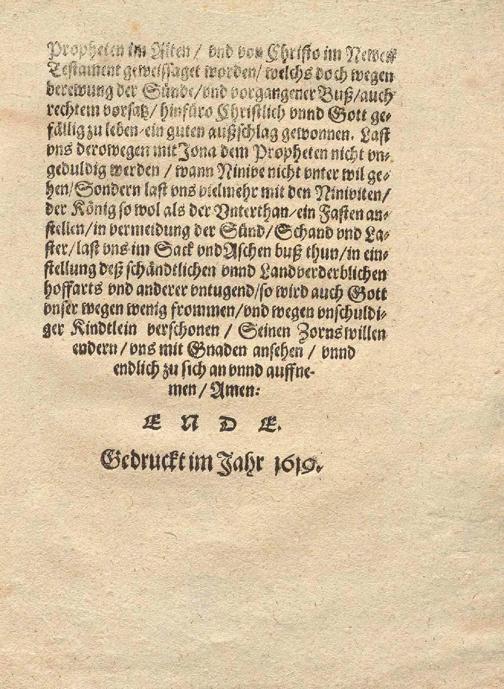 Propheten im Alten / vnd von Christo im Newen
Testament geweissaget worden / welchs doch wegen
berewung der Sünde / vnd vorgangener Buß / auch
rechtem vorsatz / hinfüro Christlich vnnd Gott ge⸗
fällig zu leben ein guten außschlag gewonnen. Last
vns derowegen mit Jona dem Propheten nicht vn⸗
geduldig werden / wann Ninive nicht vnter wil ge⸗
hen / Sondern last vns vielmehr mit den Niniviten /
der König so wol als der Vnterthan / ein Fasten an⸗
stellen / in vermeidung der Sünd / Schand vnd La⸗
ster / last vns im Sack vnd Aschen buß thun / in ein⸗
stellung deß schändtlichen vnnd Landverderblichen
hoffarts vnd anderer vntugend / so wird auch Gott
vnser wegen wenig frommen / vnd wegen vnschuldi⸗
ger Kindtlein verschonen / Seinen Zorns willen
endern / vns mit Gnaden ansehen / vnnd
endlich zu sich an vnnd auffne⸗
men / Amen:
E N D E.
Gedruckt im Jahr 1619.